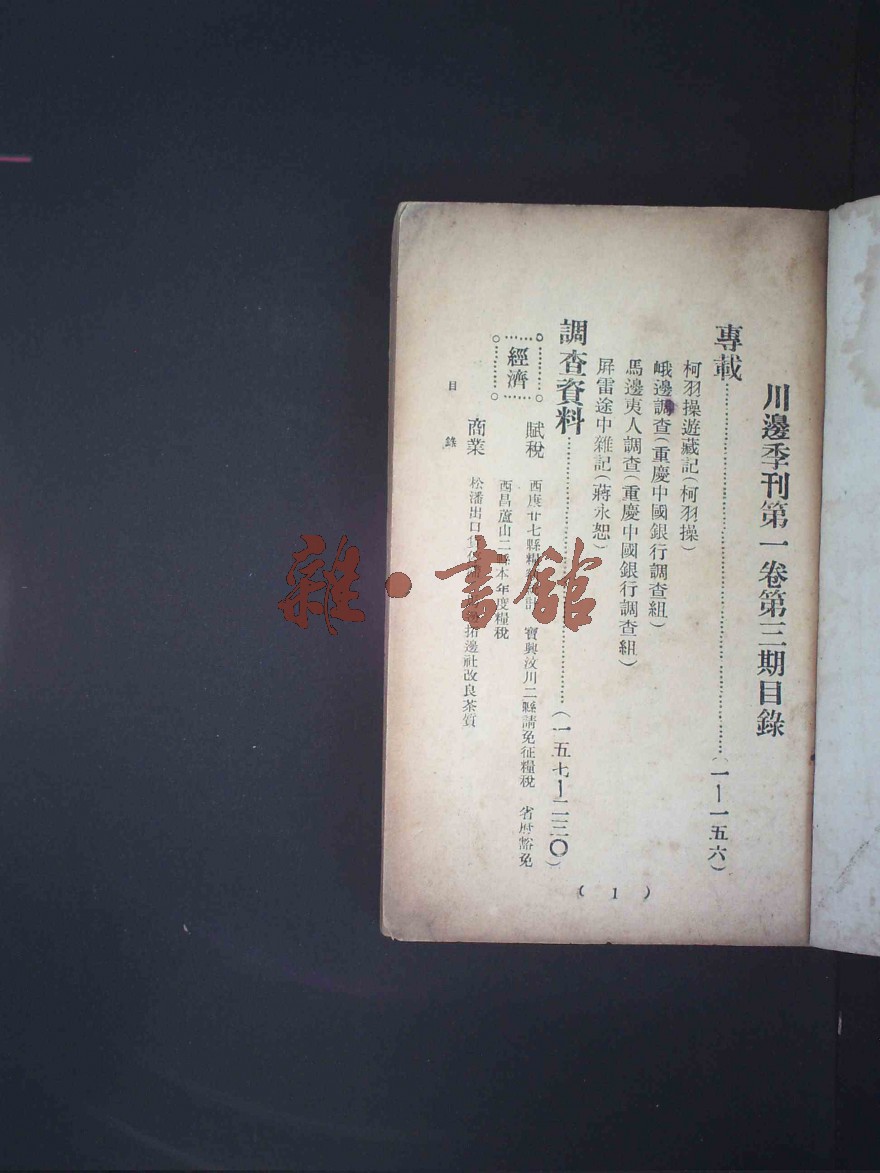 川邊季刊第一卷第三期目錄
專載……(一—一五六)
柯羽操遊藏記(柯羽操)
峨邊調查(重慶中國銀行調查組)
馬邊夷人調查(重慶中國銀行調查組)
屏雷途中雜記(蔣永恕)
調查資料……(一五七—二三〇)
經濟
賦稅 西康廿七縣糧 寶興汶川二縣請免征糧稅 省府豁免
西昌蘆山二縣本年度糧稅
商業 松潘出口 拓邊社改良茶質
目錄
(1)
雜·書館